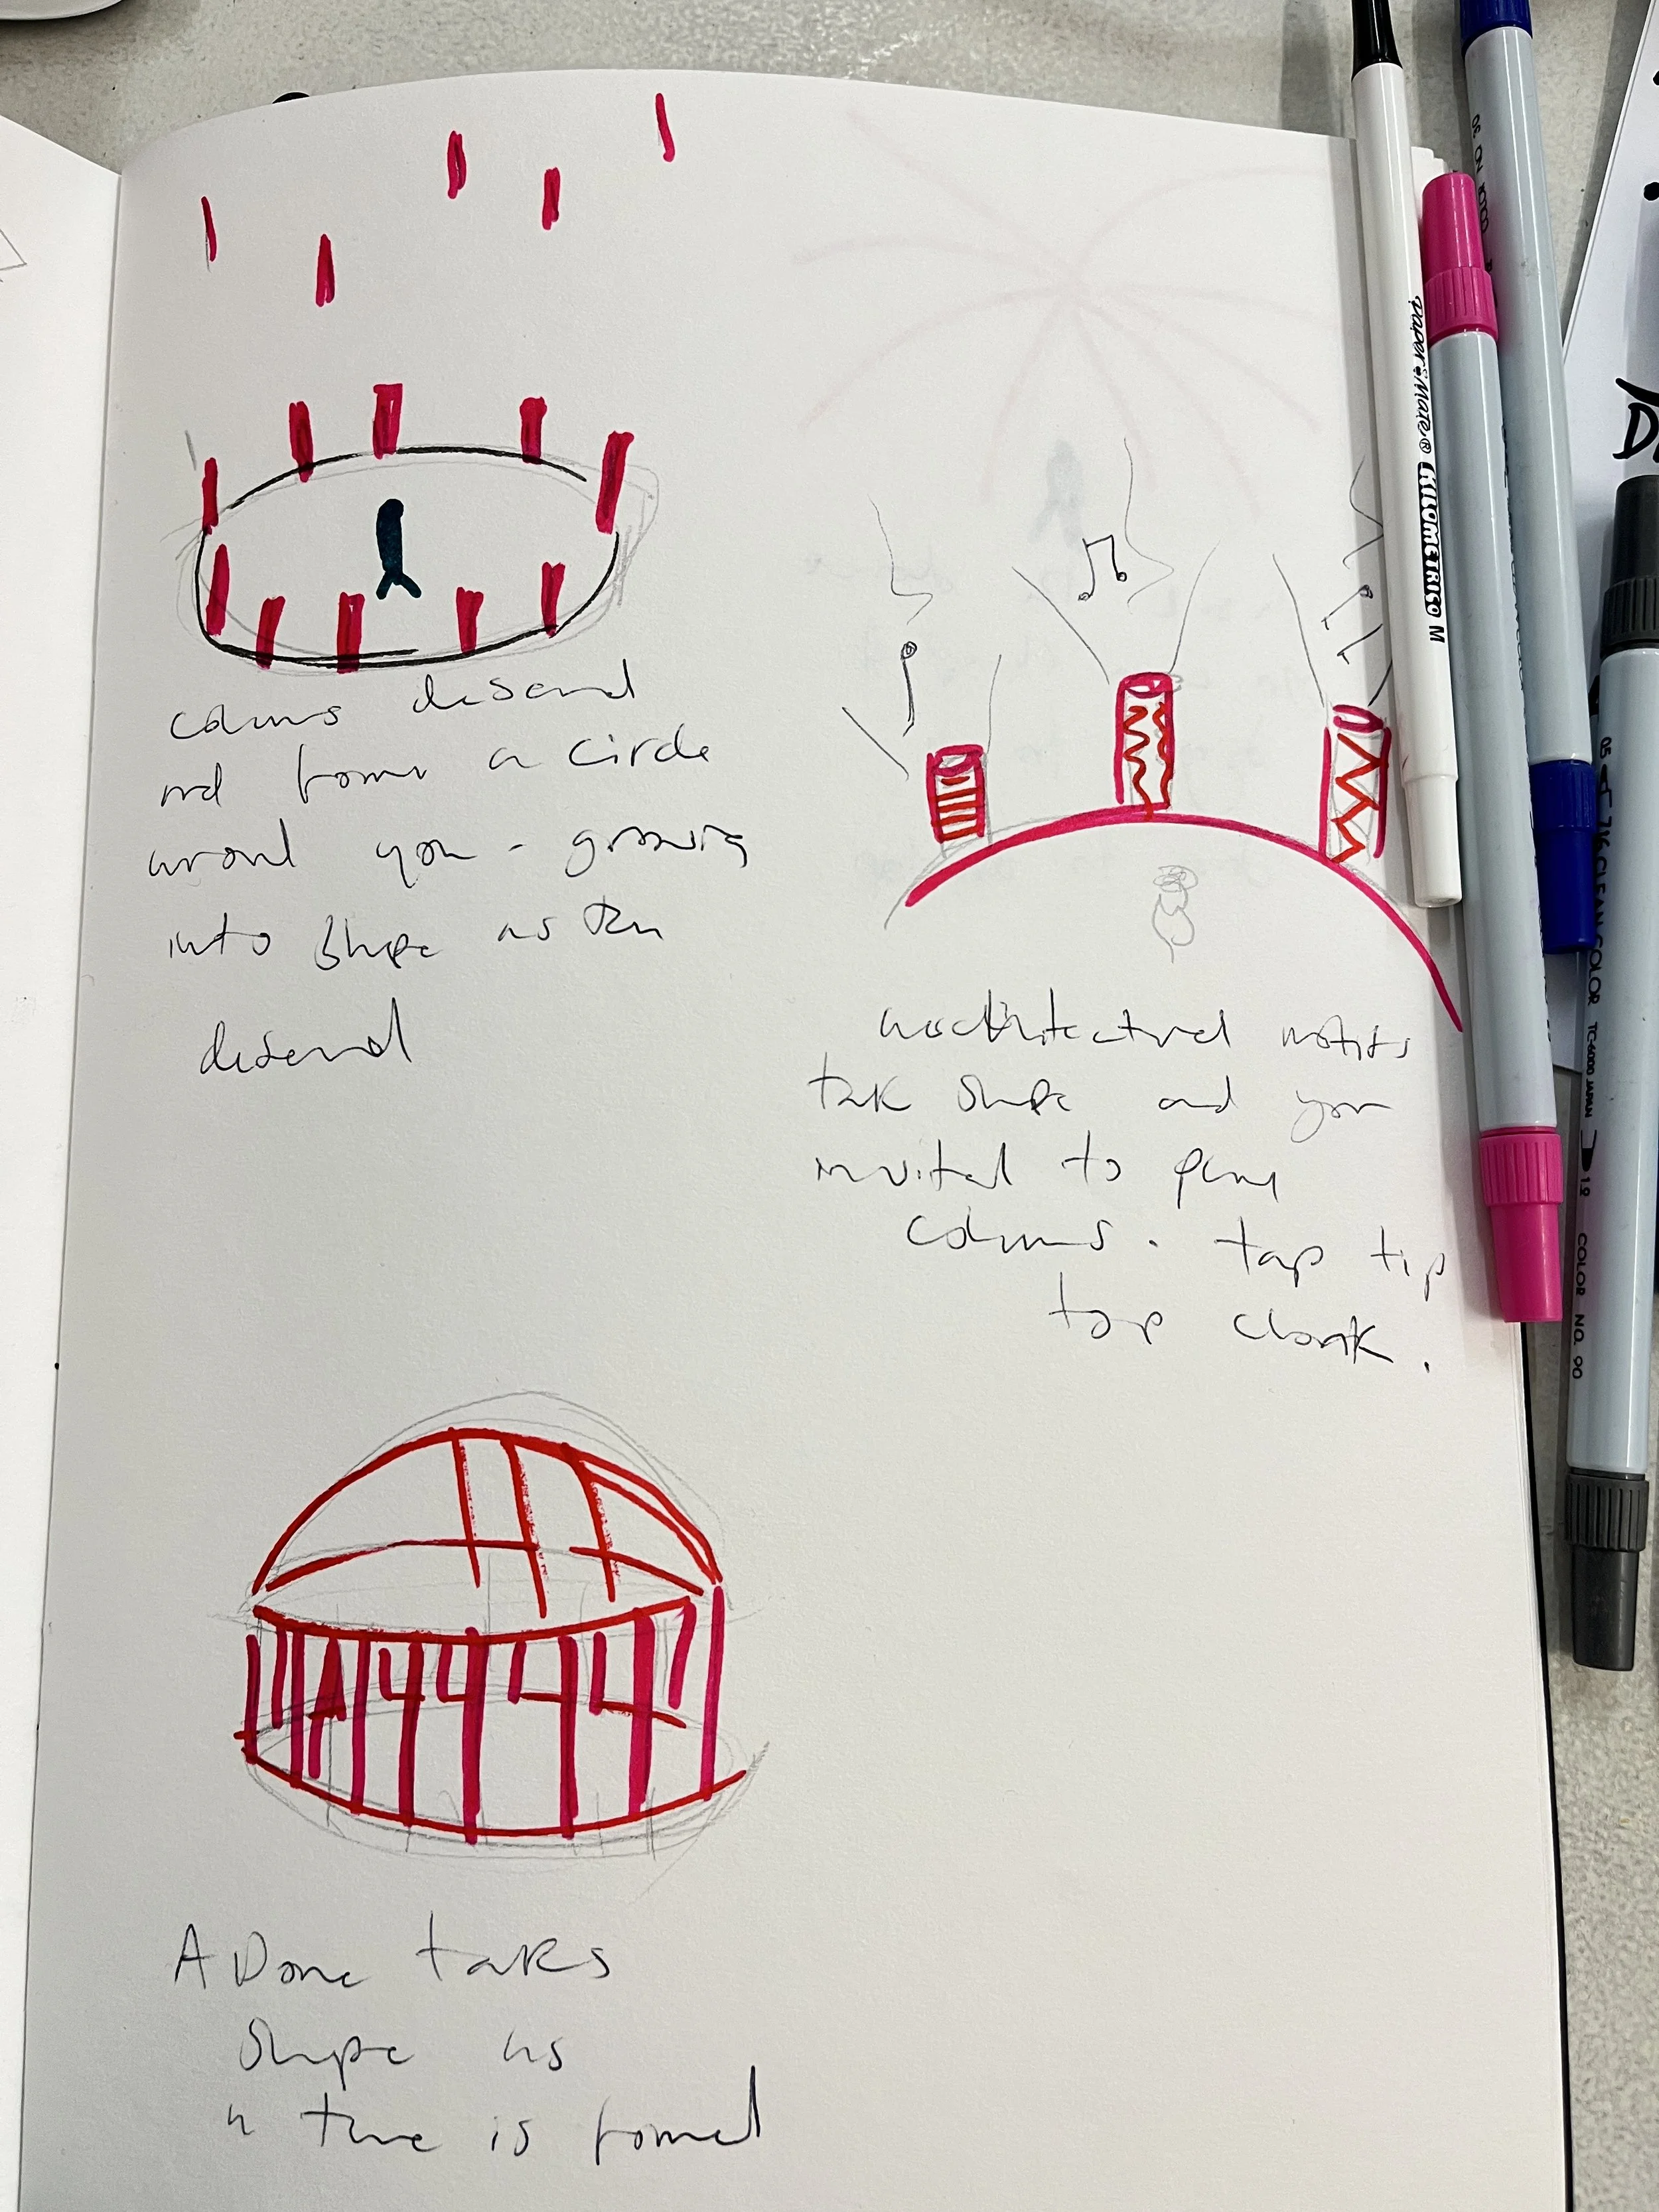 colums desend
and form a circle
around you - growing
into shape as they
desend
architectural motifs
take shape and you
invited to play
colums. tap tip
top clonk.
A Dome takes
shape as
a tune is formed
Paper:Mate® KILOMETRICO M
05
CLEAN COLOR TC-6000 JAPAN 1.2 COLOR NO. 90